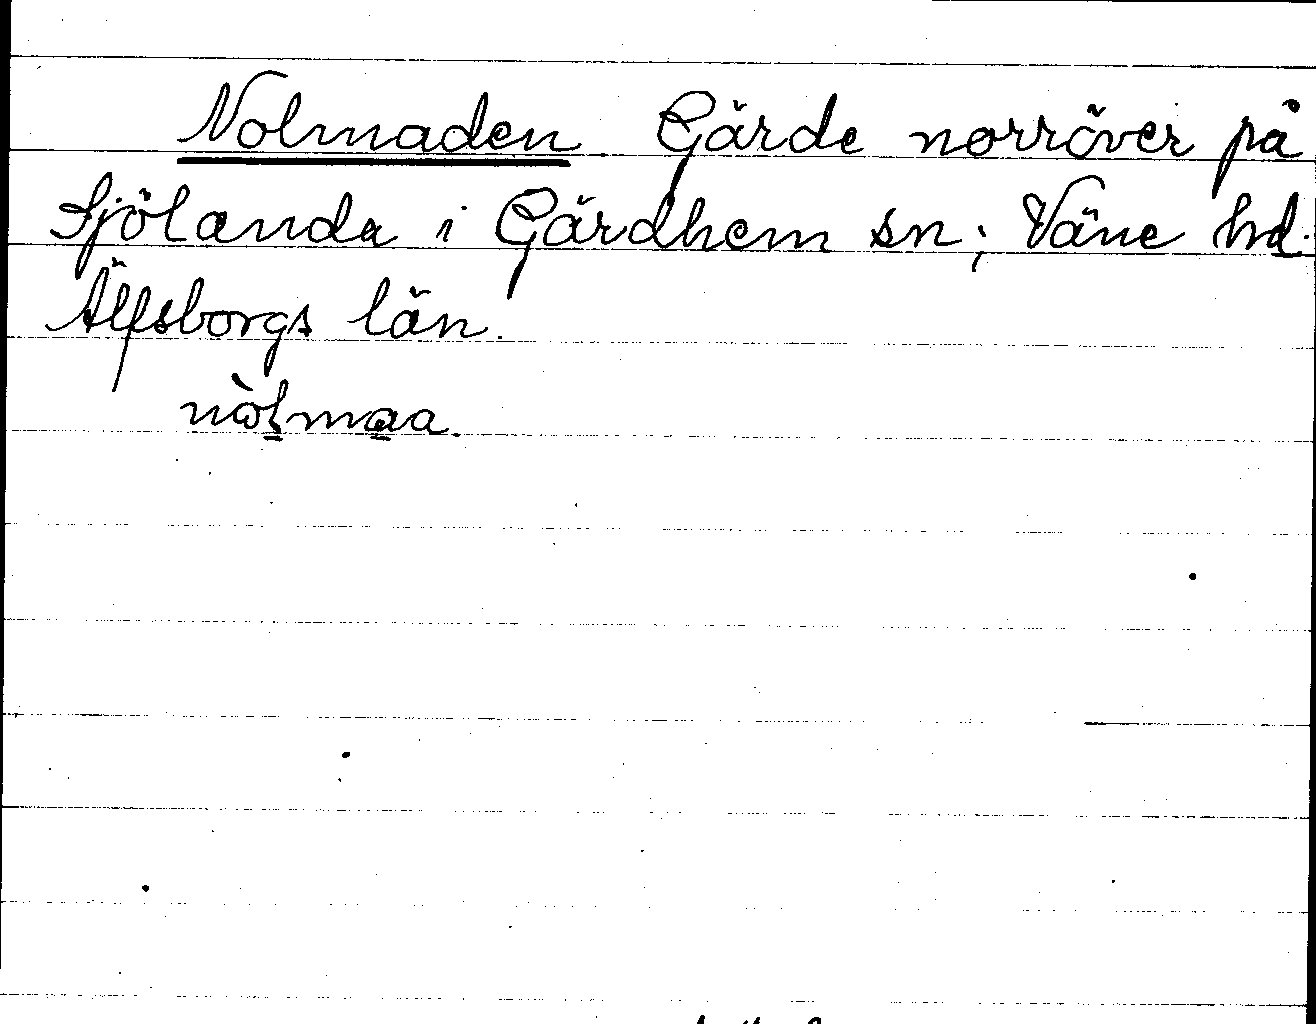 Nolmaden Gärde norröver på
Sjölanda i Gärdhem sn; Väne hd.
Älfsborgs län.
nòlmaa.